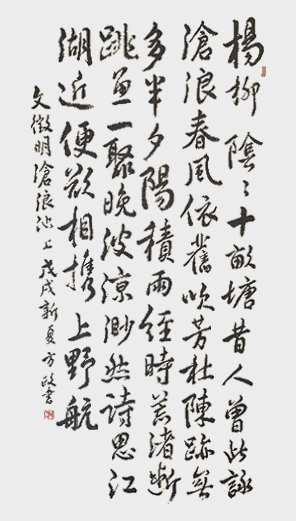 楊柳陰〻十畝塘昔人曾此詠
滄浪春風依舊吹芳杜陳跡無
多半夕陽積雨經時荒渚斷
跳魚一聚晚波涼渺然詩思江
湖近便欲相携上野航
文徵明滄浪池上戊戌新夏方政書